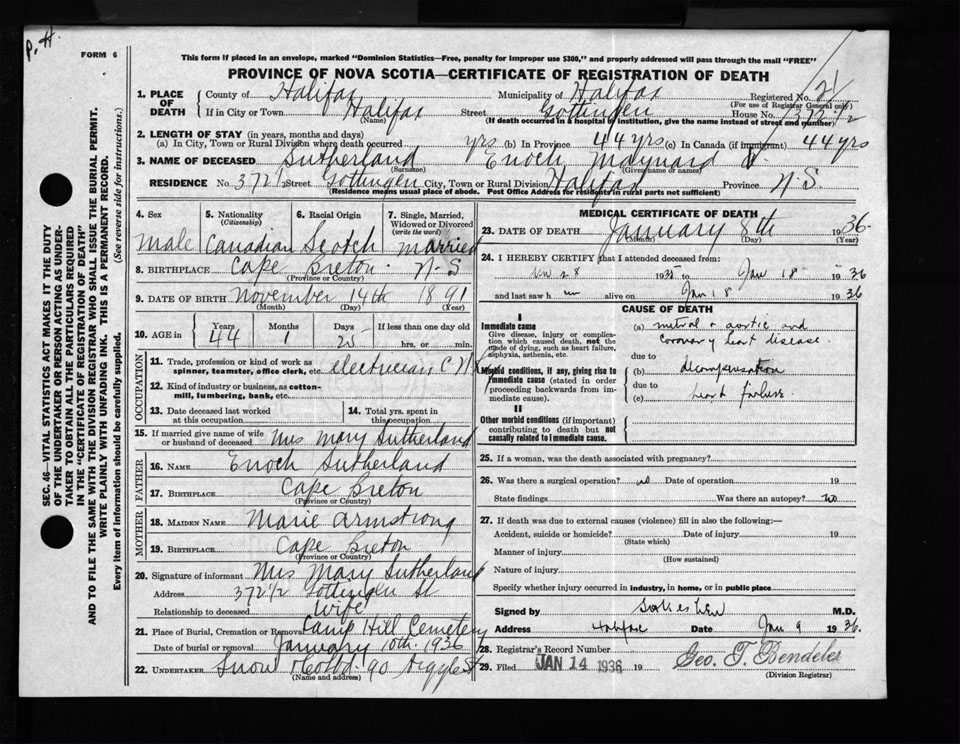 P. H.
FORM 6
This form if placed in an envelope, marked "Dominion Statistics—Free, penalty for improper use $300," and properly addressed will pass through the mail "FREE"
PROVINCE OF NOVA SCOTIA—CERTIFICATE OF REGISTRATION OF DEATH
SEC. 46—VITAL STATISTICS ACT MAKES IT THE DUTY
OF THE UNDERTAKER OR PERSON ACTING AS UNDER-
TAKER TO OBTAIN ALL THE PARTICULARS REQUIRED
IN THE "CERTIFICATE OF REGISTRATION OF DEATH"
AND TO FILE THE SAME WITH THE DIVISION REGISTRAR WHO SHALL ISSUE THE BURIAL PERMIT.
WRITE PLAINLY WITH UNFADING INK. THIS IS A PERMANENT RECORD.
Every item of information should be carefully supplied. (See reverse side for instructions.)
1. PLACE OF DEATH County of Halifax Municipality of Halifax Registered No. 21
(For use of Registrar General only)
If in City or Town Halifax Street Gottingen House No. 372 1/2
(Name) (If death occurred in a hospital or institution, give the name instead of street and number)
2. LENGTH OF STAY (in years, months and days)
(a) In City, Town or Rural Division where death occurred yrs (b) In Province 44 yrs (c) In Canada (if immigrant) 44 yrs
3. NAME OF DECEASED Sutherland Enoch Maynard
(Surname) (Given name or names)
RESIDENCE No. 372 1/2 Street Gottingen City, Town or Rural Division Halifax Province N.S.
(Residence means usual place of abode. Post Office Address for residents in rural parts not sufficient)
4. Sex 5. Nationality 6. Racial Origin 7. Single, Married,
(Citizenship) Widowed or Divorced
(write the word)
Male Canadian Scotch Married
8. BIRTHPLACE Cape Breton N-S
(Province or Country)
9. DATE OF BIRTH November 14th 1891
(Month) (Day) (Year)
10. AGE in Years Months Days If less than one day old
44 1 25 hrs. or min.
OCCUPATION
11. Trade, profession or kind of work as
spinner, teamster, office clerk, etc. electrician
12. Kind of industry or business, as cotton-
mill, lumbering, bank, etc.
13. Date deceased last worked
at this occupation
14. Total yrs. spent in
this occupation
15. If married give name of wife
or husband of deceased Mrs Mary Sutherland
FATHER
16. NAME Enoch Sutherland
17. BIRTHPLACE Cape Breton
(Province or Country)
MOTHER
18. MAIDEN NAME Marie Armstrong
19. BIRTHPLACE Cape Breton
(Province or Country)
20. Signature of informant Mrs Mary Sutherland
Address 372 1/2 Gottingen St
Relationship to deceased Wife
21. Place of Burial, Cremation or Removal Camp Hill Cemetery
Date of burial or removal January 10th 1936
22. UNDERTAKER Snow & Co Ltd. 90 Argyle St
(Name and address)
MEDICAL CERTIFICATE OF DEATH
23. DATE OF DEATH January 8th 1936
(Month) (Day) (Year)
24. I HEREBY CERTIFY that I attended deceased from
28 1935 to Jan 18 1936
and last saw h im alive on Jan 18 1936
CAUSE OF DEATH
I
Immediate cause
Give disease, injury or complica-
tion which caused death, not the
mode of dying, such as heart failure,
asphyxia, asthenia, etc.
(a) mitral & aortic and
coronary heart disease.
due to
Morbid conditions, if any, giving rise to
immediate cause (stated in order
proceeding backwards from im-
mediate cause).
(b) decompensation
due to
(c) heart failure
II
Other morbid conditions (if important)
contributing to death but not
causally related to immediate cause.
25. If a woman, was the death associated with pregnancy?
26. Was there a surgical operation? no Date of operation 19
State findings Was there an autopsy? no
27. If death was due to external causes (violence) fill in also the following:—
Accident, suicide or homicide? Date of injury 19
(State which)
Manner of injury
(How sustained)
Nature of injury
Specify whether injury occurred in industry, in home, or in public place
Signed by M.D.
Address Halifax Date Jan 9 1936.
28. Registrar's Record Number
29. Filed JAN 14 1936 19 Geo. T. Bendeler
(Division Registrar)